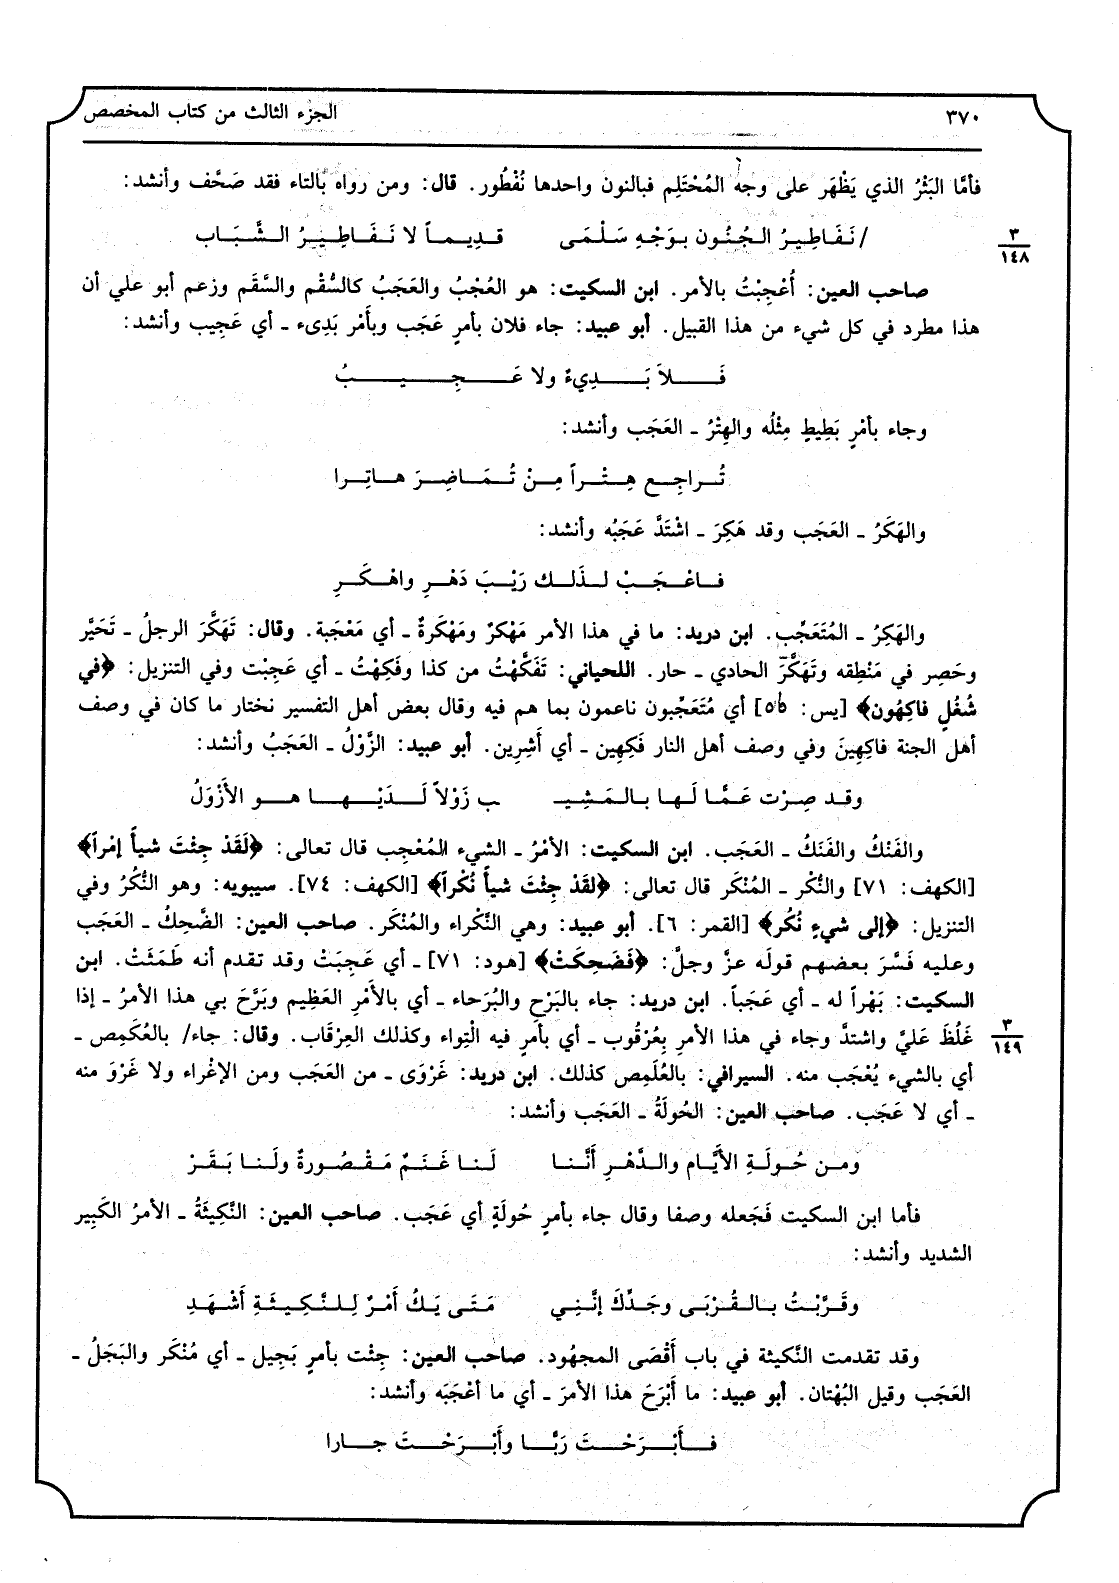 ٣٧٠ الجزء الثالث من كتاب المخصص
فأمَّا البَثْرُ الذي يَظْهَر على وجه المُحْتَلِم فبالنون واحدها نُفْطُور. قال: ومن رواه بالتاء فقد صَحَّف وأنشد:
/نَفَاطِيرُ الجُنُون بوَجْهِ سَلْمَى قديماً لا نَفَاطِيرُ الشَّبَاب
٣
١٤٨
صاحب العين: أُعْجِبْتُ بالأمر. ابن السكيت: هو العُجْبُ والعَجَبُ كالسُّقْم والسَّقَم وزعم أبو علي أن
هذا مطرد في كل شيء من هذا القبيل. أبو عبيد: جاء فلان بأمرٍ عَجَب وبأَمْر بَدِىء ـ أي عَجِيب وأنشد:
فَلاَ بَدِيءٌ ولا عَجِيبُ
وجاء بأَمْرٍ بَطِيطٍ مِثْلُه والهِتْرُ ـ العَجَب وأنشد:
تُراجِع هِتْراً مِنْ تُمَاضِرَ هاتِرا
والهَكَرُ ـ العَجَب وقد هَكِرَ ـ اشْتَدَّ عَجَبُه وأنشد:
فاعْجَبْ لذَلك رَيْبَ دَهْرٍ واهْكَرِ
والهَكِرُ ـ المُتَعَجِّب. ابن دريد: ما في هذا الأمر مَهْكَرٌ ومَهْكَرةٌ ـ أي مَعْجَبة. وقال: تَهَكَّرَ الرجلُ ـ تَحَيَّر
وحَصِر في مَنْطِقه وتَهَكَّرَ الحادي ـ حار. اللحياني: تَفَكَّهْتُ من كذا وفَكِهْتُ ـ أي عَجِبْت وفي التنزيل: ﴿في
شُغُلٍ فاكِهُون﴾ [يس: ٥٥] أي مُتَعَجِّبون ناعمون بما هم فيه وقال بعض أهل التفسير نختار ما كان في وصف
أهل الجنة فاكِهِينَ وفي وصف أهل النار فَكِهِين ـ أي أَشِرِين. أبو عبيد: الزَّوْلُ ـ العَجَبُ وأنشد:
وقد صِرْت عَمًّا لَها بالمَشِيـ ـب زَوْلاً لَدَيْها هو الأَزْوَلُ
والفَنْكُ والفَنَكُ ـ العَجَب. ابن السكيت: الأمْرُ ـ الشيء المُعْجِب قال تعالى: ﴿لَقَدْ جِئْتَ شيأً إمْراً﴾
[الكهف: ٧١] والنُّكْر ـ المُنْكَر قال تعالى: ﴿لقَدْ جِئْتَ شيأً نُكْراً﴾ [الكهف: ٧٤]. سيبويه: وهو النُّكُرُ وفي
التنزيل: ﴿إلى شيءٍ نُكُر﴾ [القمر: ٦]. أبو عبيد: وهي النَّكْراء والمُنْكَر. صاحب العين: الضَّحِكُ ـ العَجَب
وعليه فَسَّرَ بعضهم قولَه عزَّ وجلَّ: ﴿فَضَحِكَتْ﴾ [هود: ٧١] ـ أي عَجِبَتْ وقد تقدم أنه طَمَثَتْ. ابن
السكيت: بَهْراً له ـ أي عَجَباً. ابن دريد: جاء بالبَرْحِ والبُرَحاء ـ أي بالأَمْرِ العَظِيم وبَرَّحَ بي هذا الأمرُ ـ إذا
غَلُظَ عَليَّ واشتدَّ وجاء في هذا الأمرِ بِعُرْقُوب ـ أي بأمرٍ فيه الْتِواء وكذلك العِرْقاب. وقال: جاء/ بالعُكَمِص ـ
٣
١٤٩
أي بالشيء يُعْجَب منه. السيرافي: بالعُلَمِص كذلك. ابن دريد: غَرْوَى ـ من العَجَب ومن الإغْراء ولا غَرْوَ منه
ـ أي لا عَجَب. صاحب العين: الحُولَةُ ـ العَجَب وأنشد:
ومن حُولَةِ الأيَّام والدَّهْرِ أنَّنا لَنا غَنَمٌ مَقْصُورةٌ ولَنا بَقَرْ
فأما ابن السكيت فَجَعله وصفا وقال جاء بأمرٍ حُولَةٍ أي عَجَب. صاحب العين: النَّكِيثَةُ ـ الأمرُ الكَبِير
الشديد وأنشد:
وقَرَّبْتُ بالقُرْبَى وجَدِّكَ إنَّنِي مَتَى يَكُ أَمْرٌ لِلنَّكِيثَةِ أَشْهَدِ
وقد تقدمت النَّكيثة في باب أَقْصَى المجهُود. صاحب العين: جِئْت بأمرٍ بَجِيل ـ أي مُنْكَر والبَجَلُ ـ
العَجَب وقيل البُهْتان. أبو عبيد: ما أَبْرَحَ هذا الأمرَ ـ أي ما أعْجَبَه وأنشد:
فأَبْرَحْتَ رَبًّا وأَبْرَحْتَ جارا